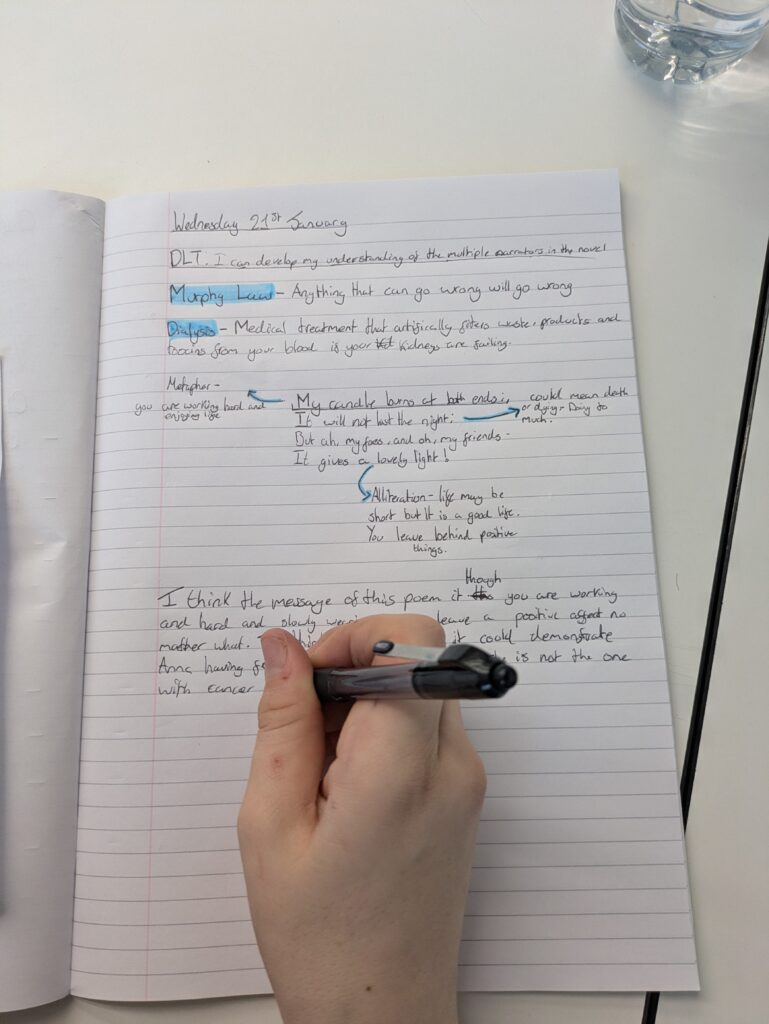 Wednesday 21st January
DLT. I can develop my understanding of the multiple narrators in the novel
Murphy Law - Anything that can go wrong will go wrong
Dialysis - Medical treatment that artifically filters waste, products and
toxins from your blood is your kidneys are failing.
Metaphor -
you are working hard and
enjoying life
My candle burns at both ends;
It will not last the night;
But ah, my foes, and oh, my friends -
It gives a lovely light!
could mean death
or dying - Doing to
much.
Alliteration - life may be
short but It is a good life.
You leave behind positive
things.
I think the message of this poem it though you are working
and hard and slowly leave a positive affect no
matter what. it could demonstrate
Anna having is not the one
with cancer